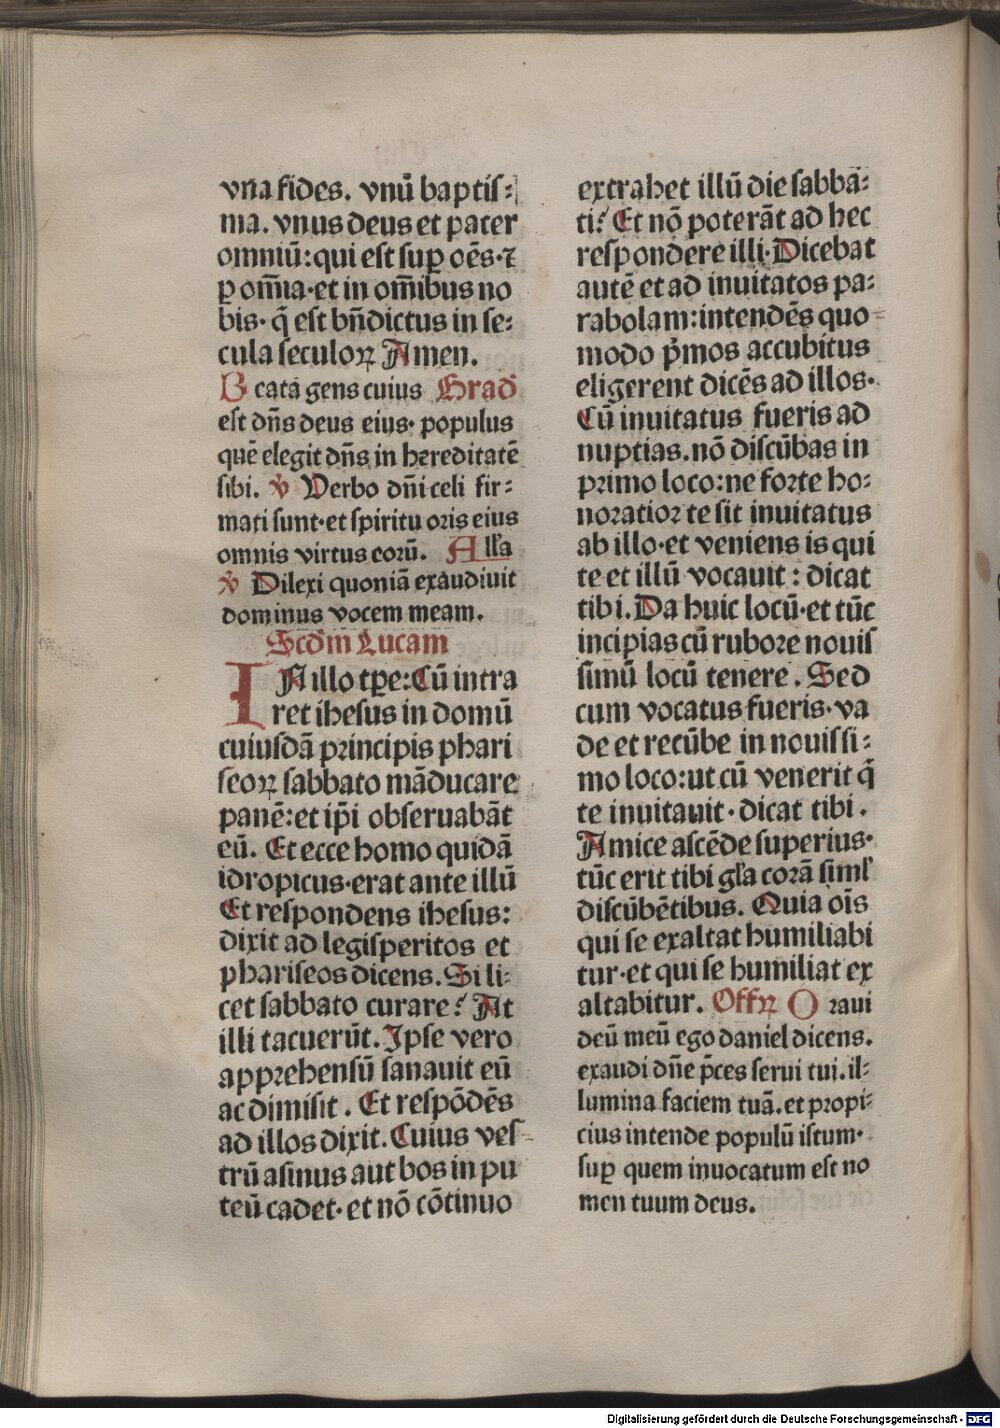 vna fides. vnū baptis⸗
ma. vnus deus et pater
omniū: qui est suꝑ oēs· ⁊
ꝑ om̄ia· et in om̄ibus no
bis· q̄ est bn̄dictus in se⸗
cula seculoꝝ Amen.
Beata gens cuius Grad̄
est dn̄s deus eius· populus
quē elegit dn̄s in hereditatē
sibi. ꝟ Verbo dn̄i celi fir⸗
mati sunt· et spiritu oris eius
omnis virtus eorū. All'a
ꝟ Dilexi quoniā exaudiuit
dominus vocem meam.
Scd̄m Lucam
IN illo tꝑe: Cū intra
ret ihesus in domū
cuiusdā principis phari
seoꝝ sabbato māducare
panē: et ip̄i obseruabāt
eū. Et ecce homo quidā
idropicus· erat ante illū
Et respondens ihesus:
dixit ad legisperitos et
phariseos dicens. Si li⸗
cet sabbato curare? At
illi tacuerūt. Ipse vero
apprehensū sanauit eū
ac dimisit. Et respōdēs
ad illos dixit. Cuius ves⸗
trū asinus aut bos in pu
teū cadet· et nō cōtinuo
extrahet illū die sabba⸗
ti? Et nō poterāt ad hec
respondere illi· Dicebat
autē et ad inuitatos pa⸗
rabolam: intendēs quo⸗
modo p̄mos accubitus
eligerent dicēs ad illos·
Cū inuitatus fueris ad
nuptias. nō discūbas in
primo loco: ne forte ho⸗
noratior te sit inuitatus
ab illo· et veniens is qui
te et illū vocauit: dicat
tibi. Da huic locū· et tūc
incipias cū rubore nouis
simū locū tenere. Sed
cum vocatus fueris· va
de et recūbe in nouissi⸗
mo loco: ut cū venerit q̄
te inuitauit· dicat tibi.
Amice ascēde superius·
tūc erit tibi gl'a corā siml'
discūbētibus. Quia oīs
qui se exaltat humiliabi
tur· et qui se humiliat ex
altabitur. Offꝝ Oraui
deū meū ego daniel dicens.
exaudi dn̄e p̄ces serui tui. il⸗
lumina faciem tuā. et propi⸗
cius intende populū istum·
suꝑ quem inuocatum est no
men tuum deus.
Digitalisierung gefördert durch die Deutsche Forschungsgemeinschaft - DFG